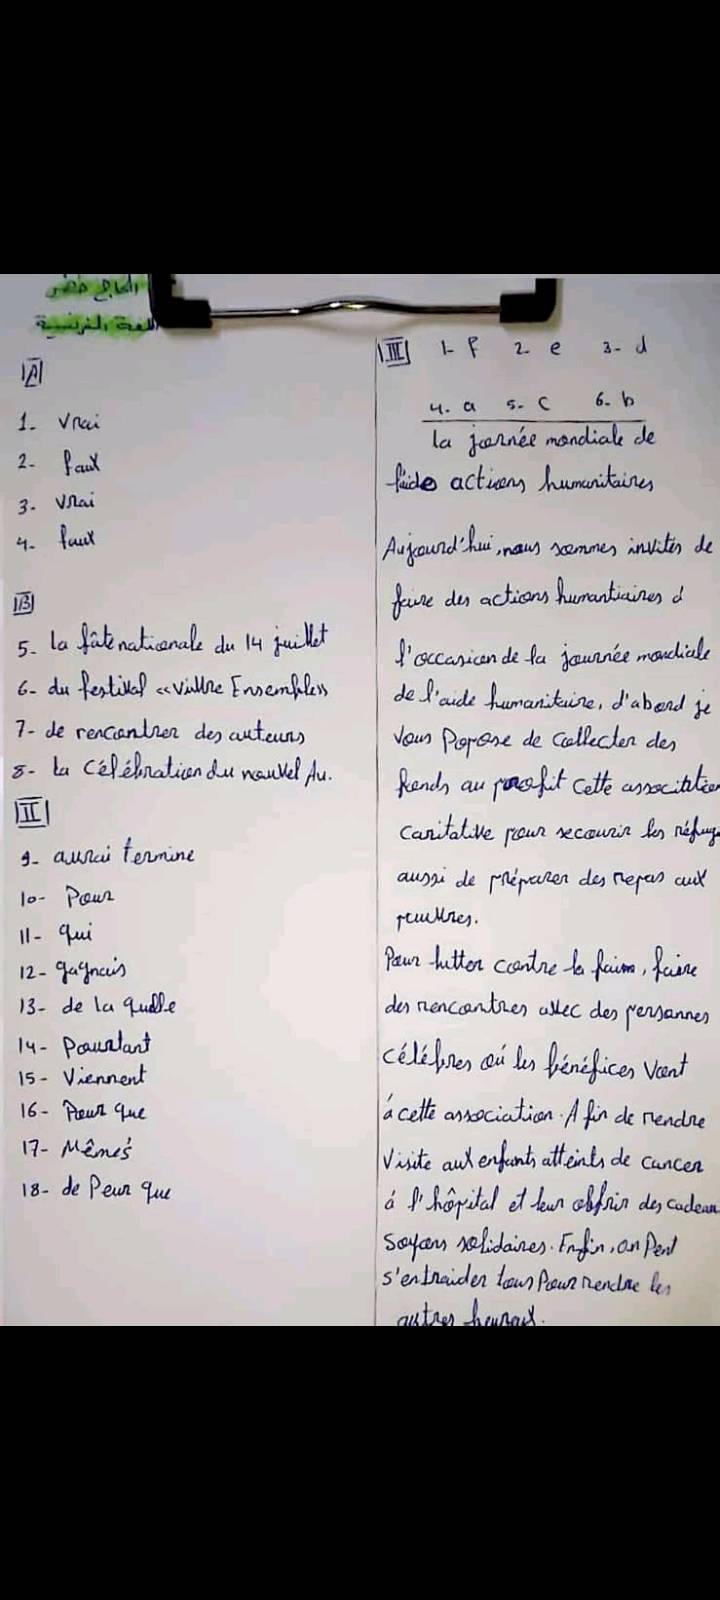 الحاج خضر
اللغة الفرنسية
A
1- Vrai
2- faux
3- Vrai
4- faux
B
5- la fâte nationale du 14 juillet
6- du festival «vivre Ensemble»
7- de rencontrer des auteurs
8- la célébration du nouvel An.
II
9- aurai termine
10- Pour
11- qui
12- gagnais
13- de la quelle
14- Pourtant
15- Viennent
16- Pour que
17- Mêmes
18- de Peur que
III 1- f 2- e 3- d
4- a 5- c 6- b
la journée mondiale de
actions humanitaires
Aujourd'hui, nous sommes invités de
faire des actions humantiaires à
l'occasion de la journée mondiale
de l'aide humanitaire, d'abord je
vous Popose de collecter des
fonds au profit cette
caritative pour secourir les réfug
aussi de préparer des repas aux
pauvres.
Pour lutter contre la faim, faire
des rencontres avec des personnes
célèbres où les bénéfices vont
à cette association. A fin de rendre
Visite aux enfants atteints de cancer
à l'hôpital et leur offrir des cadeau
Soyons solidaires. Enfin, on Peut
s'entraider tous Pour rendre les
autres heureux.